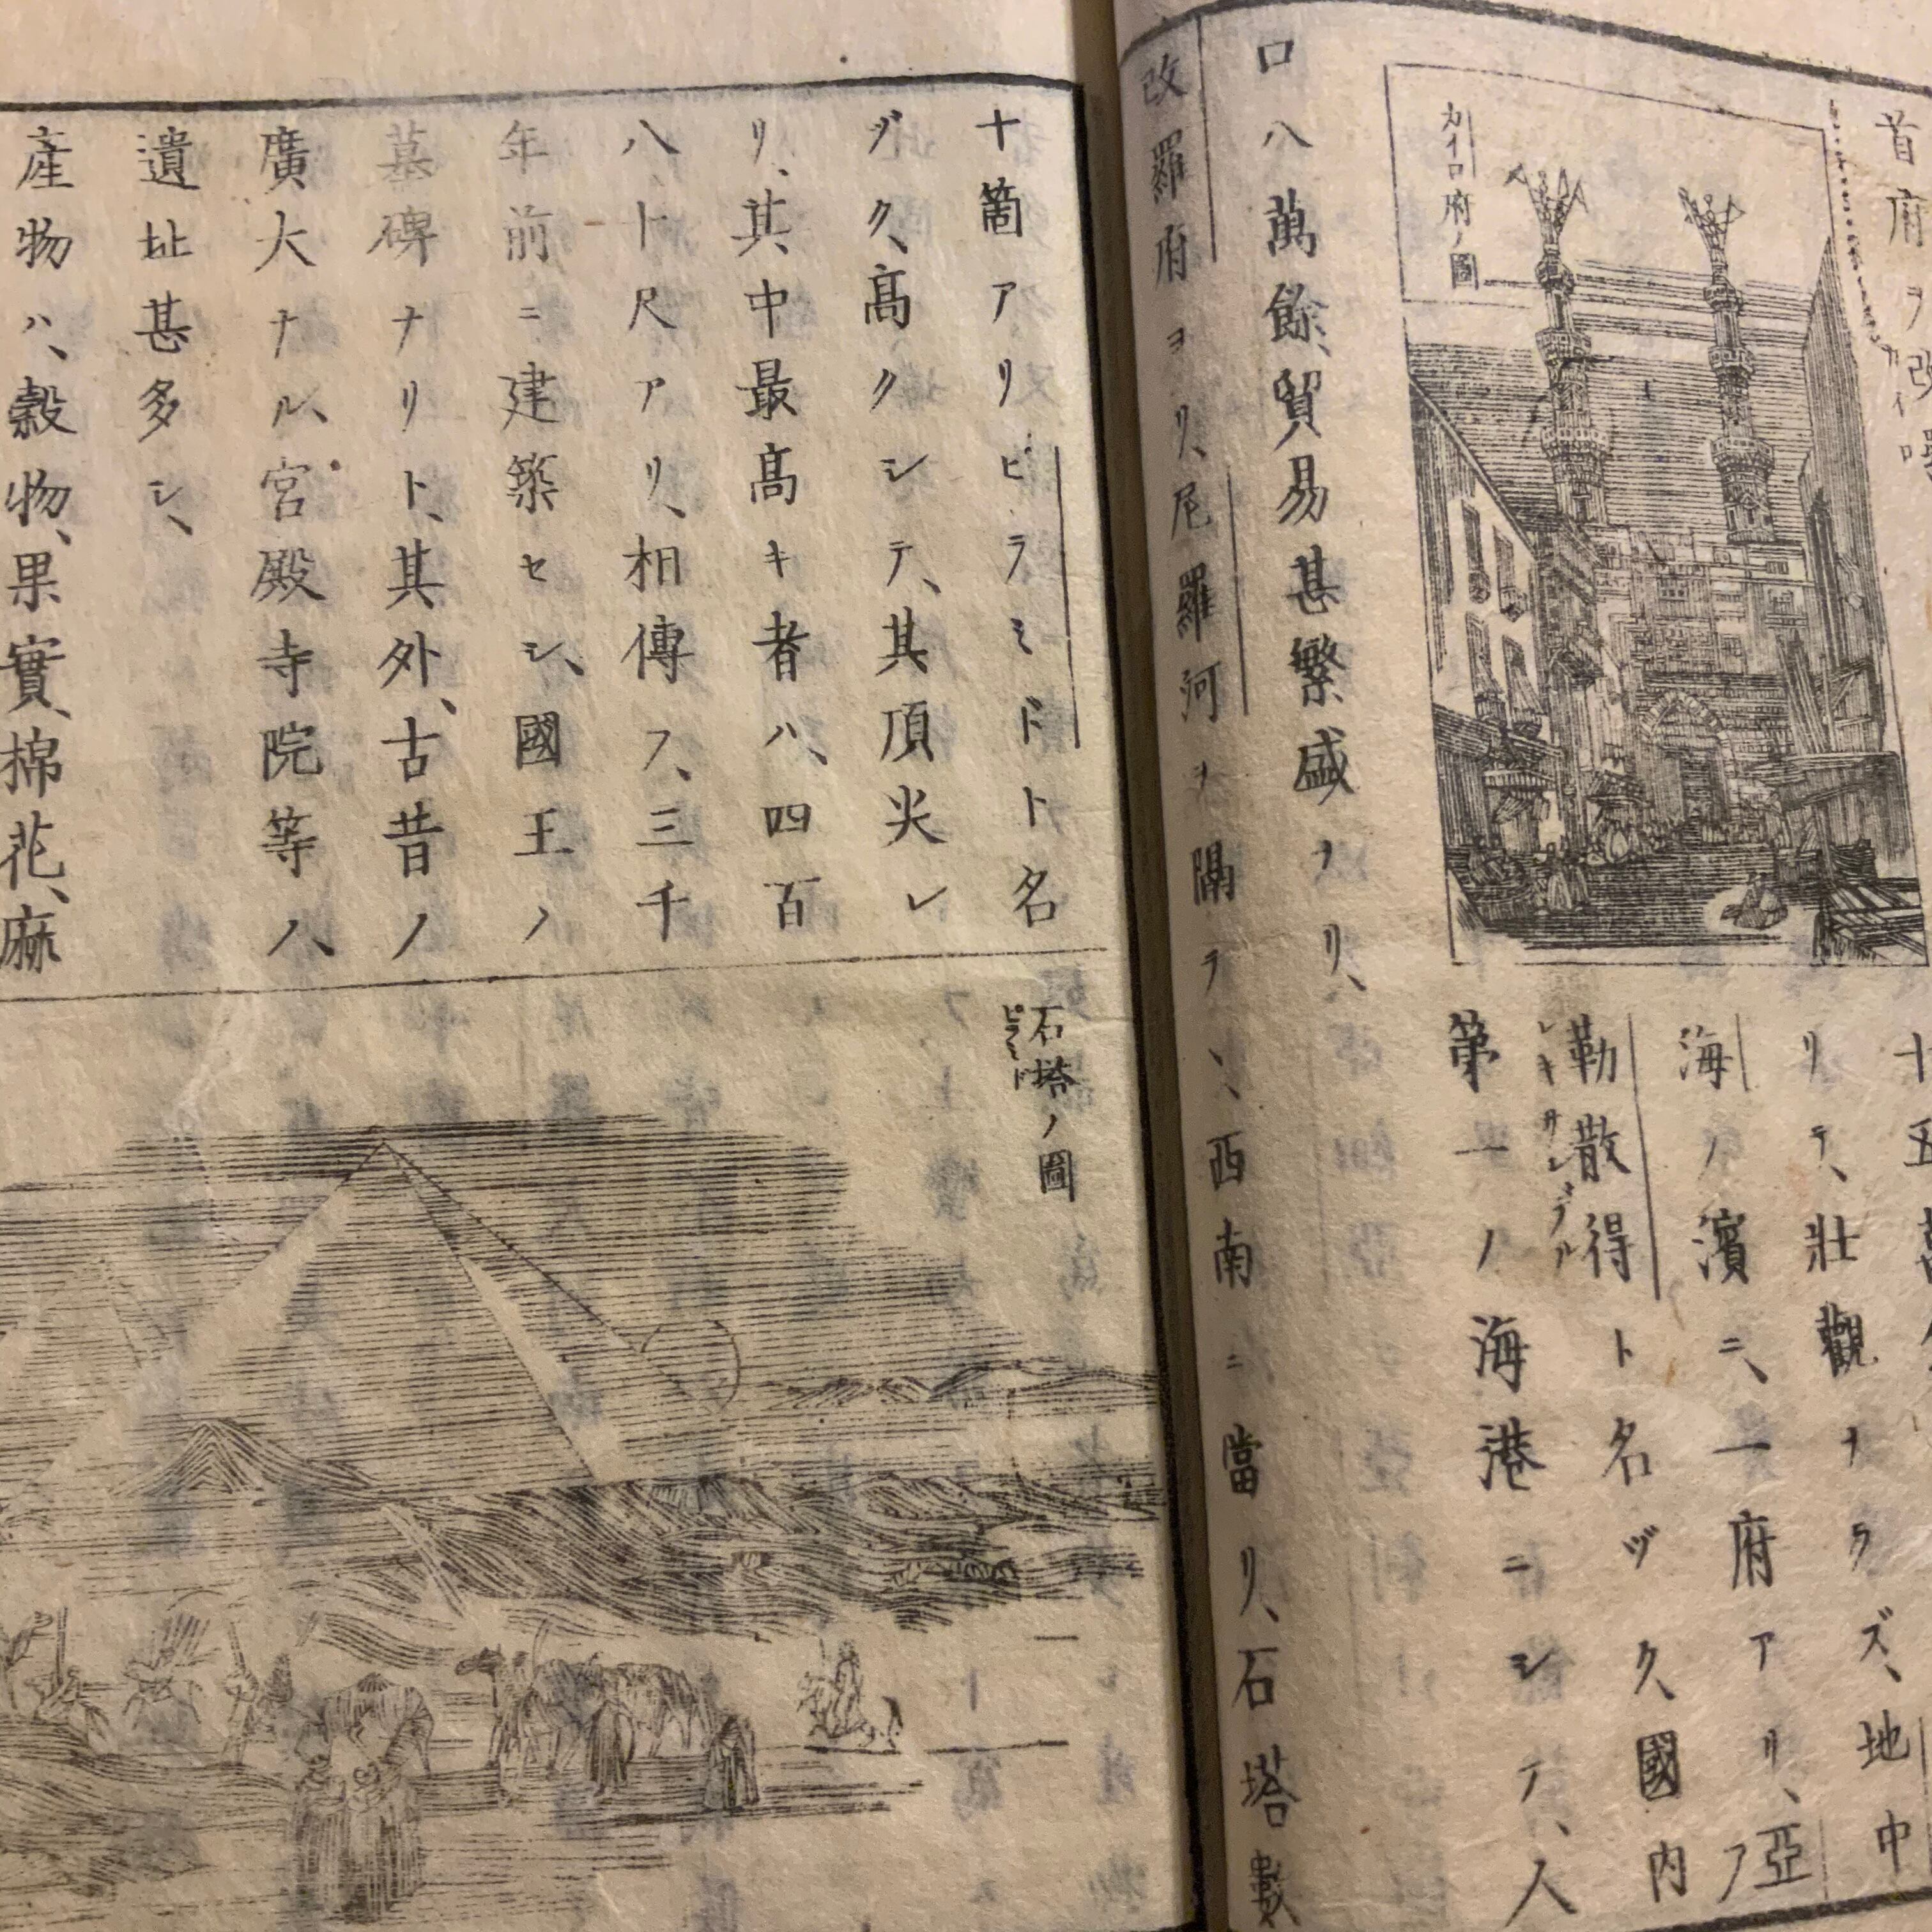 首府ヲ改
カイロ
カイロ府ノ圖
十五
リテ、壯觀ナラズ、地中
海ノ濱ニ、一府アリ、亞
勒散得ト名ヅク國內
レキサンデル
第一ノ海港ニシテ、人
口八萬餘、貿易甚繁盛ナリ、
改羅府ヨリ、尼羅河ヲ隔テヽ、西南ニ當リ、石塔數
十箇アリピラミドト名
ヅク、高クシテ、其頂尖レ
リ、其中最高キ者ハ、四百
八十尺アリ、相傳フ、三千
年前ニ建築セシ、國王ノ
墓碑ナリト、其外、古昔ノ
廣大ナル、宮殿寺院等ハ、
遺址甚多シ、
產物ハ、穀物、果實、棉花、麻
石塔ノ圖
ピラミド